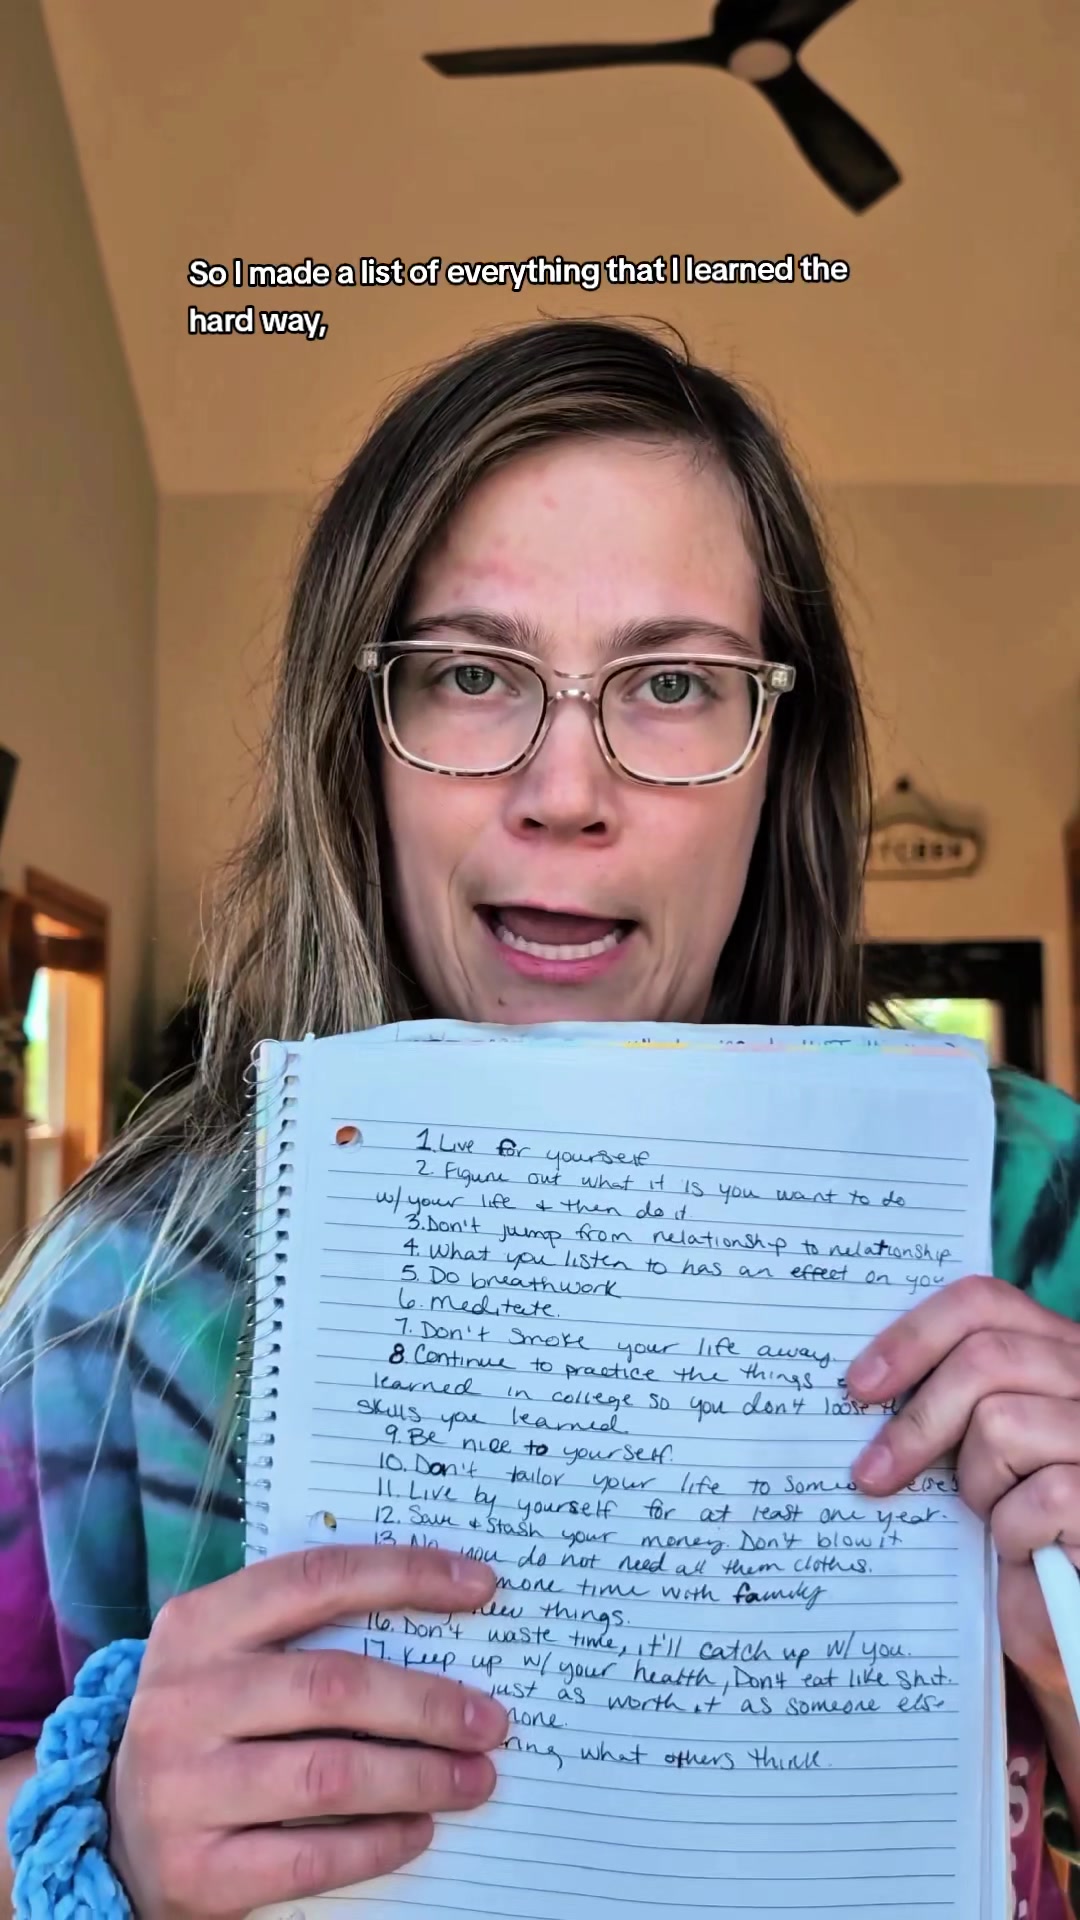 So I made a list of everything that I learned the
hard way,
1. Live for yourself
2. Figure out what it is you want to do
w/ your life & then do it
3. Don't jump from relationship to relationship
4. What you listen to has an effect on you
5. Do breathwork
6. Meditate.
7. Don't smoke your life away.
8. Continue to practice the things
learned in college so you don't loose
skills you learned.
9. Be nice to yourself.
10. Don't tailor your life to
11. Live by yourself for at least one year.
12. Save & Stash your money. Don't blow it
13. No you do not need all them clothes.
more time with family
new things.
16. Don't waste time, it'll catch up w/ you.
17. Keep up w/ your health, Don't eat like shit.
just as worth it as someone else
what others think.